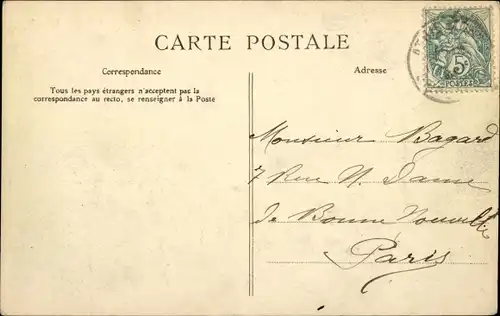 CARTE POSTALE
Correspondance
Tous les pays étrangers n'acceptent pas la
correspondance au recto, se renseigner à la Poste
Adresse
5c
POSTES
Monsieur Bagard
7 Rue N. Dame
de Bonne Nouvelle
Paris